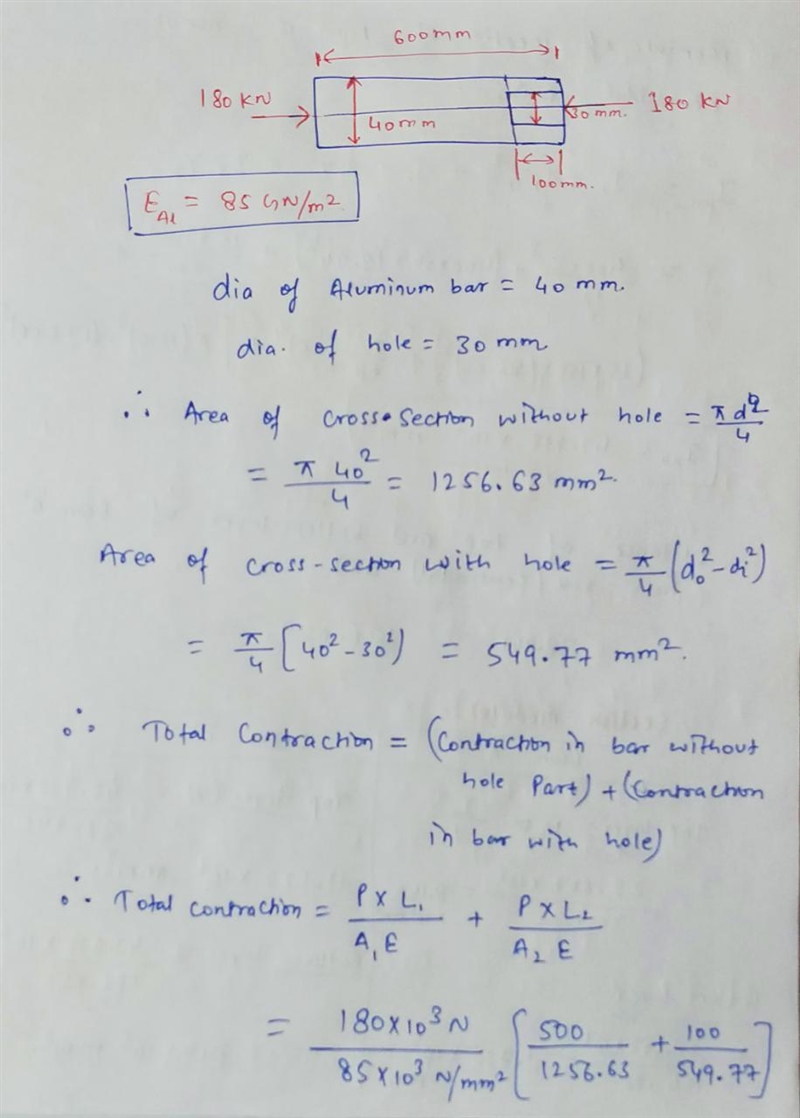 600mm
180 KN
40mm
30 mm.
180 KN
100mm.
E_Al = 85 GN/m²
dia of Aluminum bar = 40 mm.
dia. of hole = 30 mm
∴ Area of cross-section without hole = πd²/4
= π 40²/4 = 1256.63 mm².
Area of cross-section with hole = π/4 (d₀² - di²)
= π/4 [40² - 30²) = 549.77 mm².
∴ Total Contraction = (Contraction in bar without
hole Part) + (Contraction
in bar with hole)
∴ Total contraction = P X L₁/A₁E + P X L₂/A₂ E
= 180X10³ N/85X10³ N/mm² [500/1256.63 + 100/549.77]